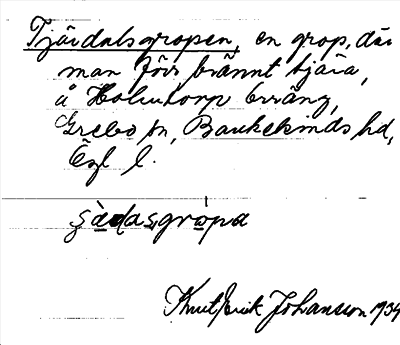 Tjärdalsgropen, en grop, där
man förr bränt tjära,
å Holmtorp
Grebo sn, Bankekinds hd,
Ög l.
Knut Erik Johansson 1934